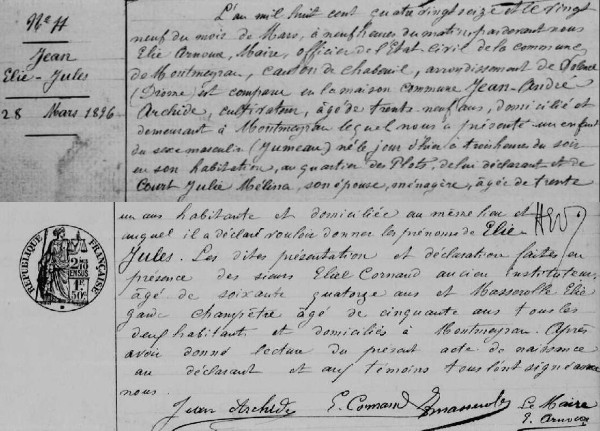 No 4
Jean
Elie-Jules
28 Mars 1896
L'an mil huit cent quatre vingt seize et le vingt
neuf du mois de Mars, à neuf heures du matin, pardevant nous
Elie Arnoux, Maire, officier de l'Etat-Civil de la commune
de Montmeyran, canton de Chabeuil, arrondissement de Valence
(Drôme) est comparu en la maison commune Jean-André
Archide, cultivateur, âgé de trente neuf ans, domicilié et
demeurant à Montmeyran lequel nous a présenté un enfant
du sexe masculin (Jumeau) né le jour d'hier à heures du soir
en son habitation, au quartier des Plots, de lui déclarant et de
Court Julie Mélina, son épouse, ménagère, âgée de trente
un ans habitante et domiciliée au même lieu et
auquel il a déclaré vouloir donner les prénoms de Elie
Jules. Les dites présentation et déclaration faites en
présence des sieurs Eliel Cornand ancien instituteur,
âgé de soixante quatorze ans et Massorolle Elie
garde champêtre âgé de cinquante ans tous les
deux habitant et domiciliés à Montmeyran. Après
avoir donné lecture du présent acte de naissance
au déclarant et aux témoins tous l'ont signé avec
nous.
Jean Archide E. Cornand Le Maire
E. Arnoux
RÉPUBLIQUE FRANÇAISE
2/10 EN SUS
1F 50C